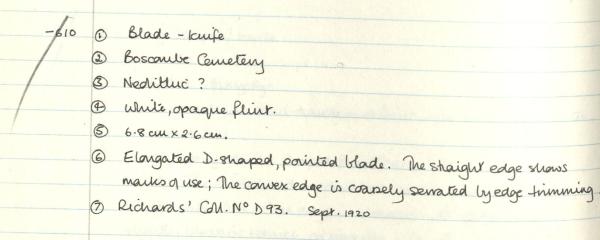 -610 ① Blade-knife
② Boscombe Cemetery
③ Neolithic ?
④ White, opaque flint.
⑤ 6.8 cm x 2.6 cm.
⑥ Elongated D-shaped, pointed blade. The straight edge shows
marks of use; The convex edge is coarsely serrated by edge trimming.
⑦ Richards' Coll. Nº D93. Sept. 1920